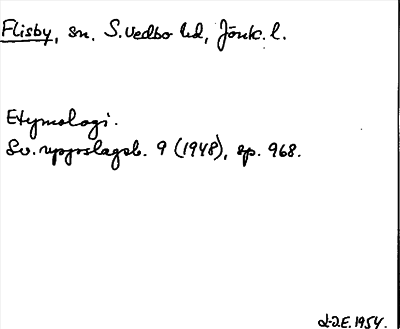 Flisby, sn. S. Vedbo hd, Jönk. l.
Etymologi.
Sv. uppslagsb. 9 (1948), sp. 968.
1954.